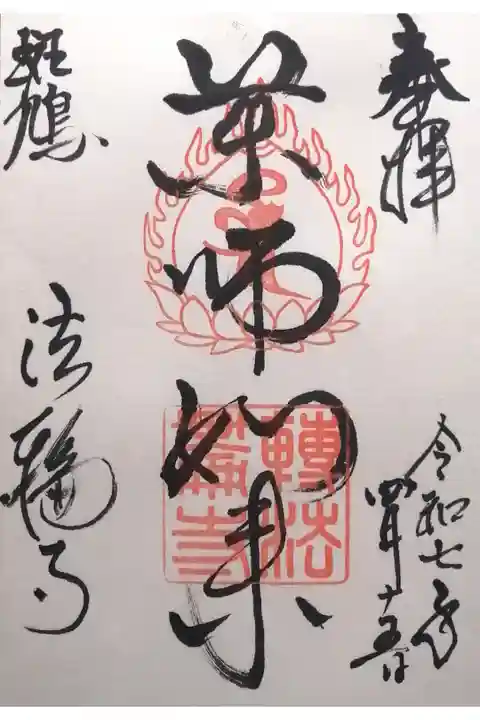 奉拝
令和七年
四月十五日
薬師如来
轉法
輪寺
斑鳩
法輪寺